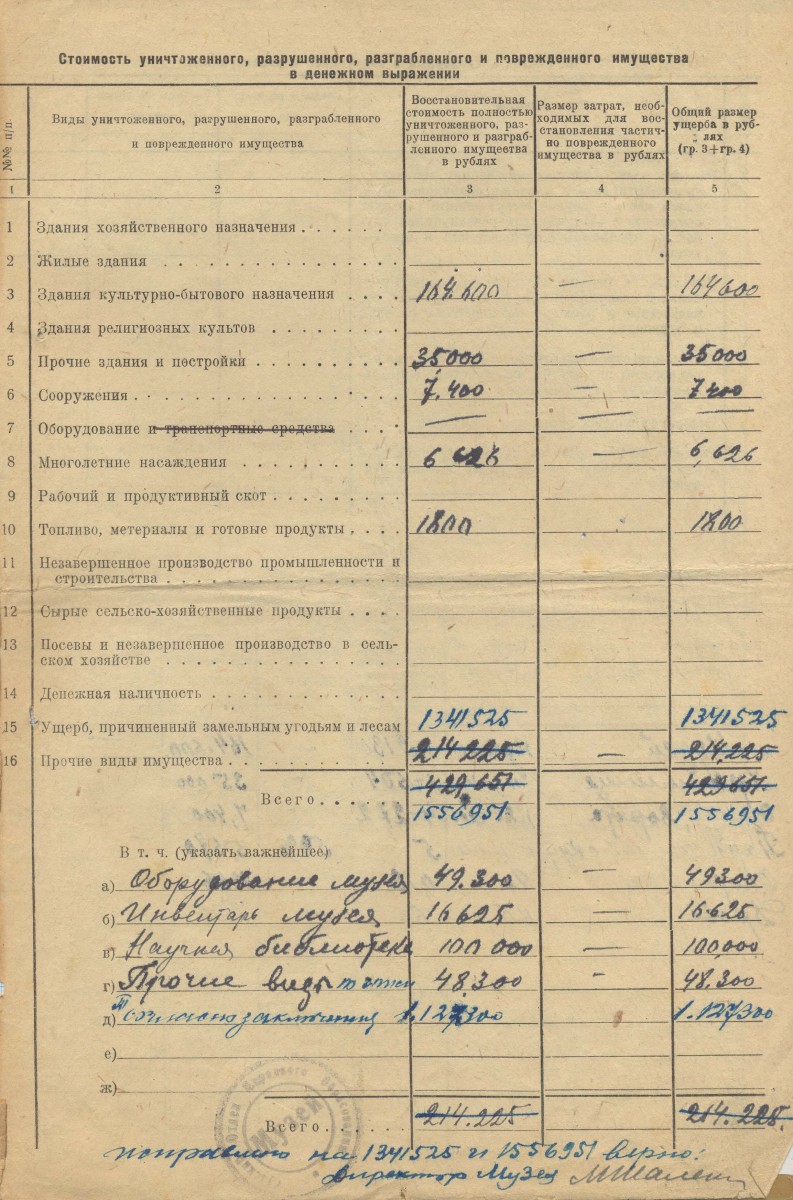 Стоимость уничтоженного, разрушенного, разграбленного и поврежденного имущества
в денежном выражении
№№ п/п.
Виды уничтоженного, разрушенного, разграбленного
и поврежденного имущества
Восстановительная
стоимость полностью
уничтоженного, раз-
рушенного и разграб-
ленного имущества
в рублях
Размер затрат, необ-
ходимых для вос-
становления частич-
но поврежденного
имущества в рублях
Общий размер
ущерба в руб-
лях
(гр. 3+гр. 4)
1 2 3 4 5
1 Здания хозяйственного назначения . . . . . .
2 Жилые здания . . . . . . . . . . . . .
3 Здания культурно-бытового назначения . . . . 164.600 — 164600
4 Здания религиозных культов . . . . . . . . .
5 Прочие здания и постройки . . . . . . . . . . 35,000 — 35000
6 Сооружения . . . . . . . . . . . . . . . . 7.400 — 7400
7 Оборудование и транспортные средства . . . . — — —
8 Многолетние насаждения . . . . . . . . . . 6 626 — 6,626
9 Рабочий и продуктивный скот . . . . . . . .
10 Топливо, метериалы и готовые продукты . . . . 1800 1800
11 Незавершенное производство промышленности и
строительства . . . . . . . . . . . . . . . .
12 Сырые сельско-хозяйственные продукты . . . .
13 Посевы и незавершенное производство в сель-
ском хозяйстве . . . . . . . . . . . . . . . .
14 Денежная наличность . . . . . . . . . . . .
15 Ущерб, причиненный замельным угодьям и лесам
1341525 1341525
16 Прочие виды имущества . . . . . . . . . . 214225 — 214,225
429,651 429651.
Всего . . . . . .
1556951 1556951
В т. ч. (указать важнейшее)
а) Оборудование музея 49.300 — 49300
б) Инвентарь музея 16625 — 16625
в) Научная библиотека 100 000 — 100,000
г) Прочие виды 48.300 — 48.300
д) Согласно заключения 1.127300 1.127300
е)
ж)
Всего . . . . . . 214.225 214.225.
Музей
исправлено на 1341525 и 1556951 верно:
Директор Музея